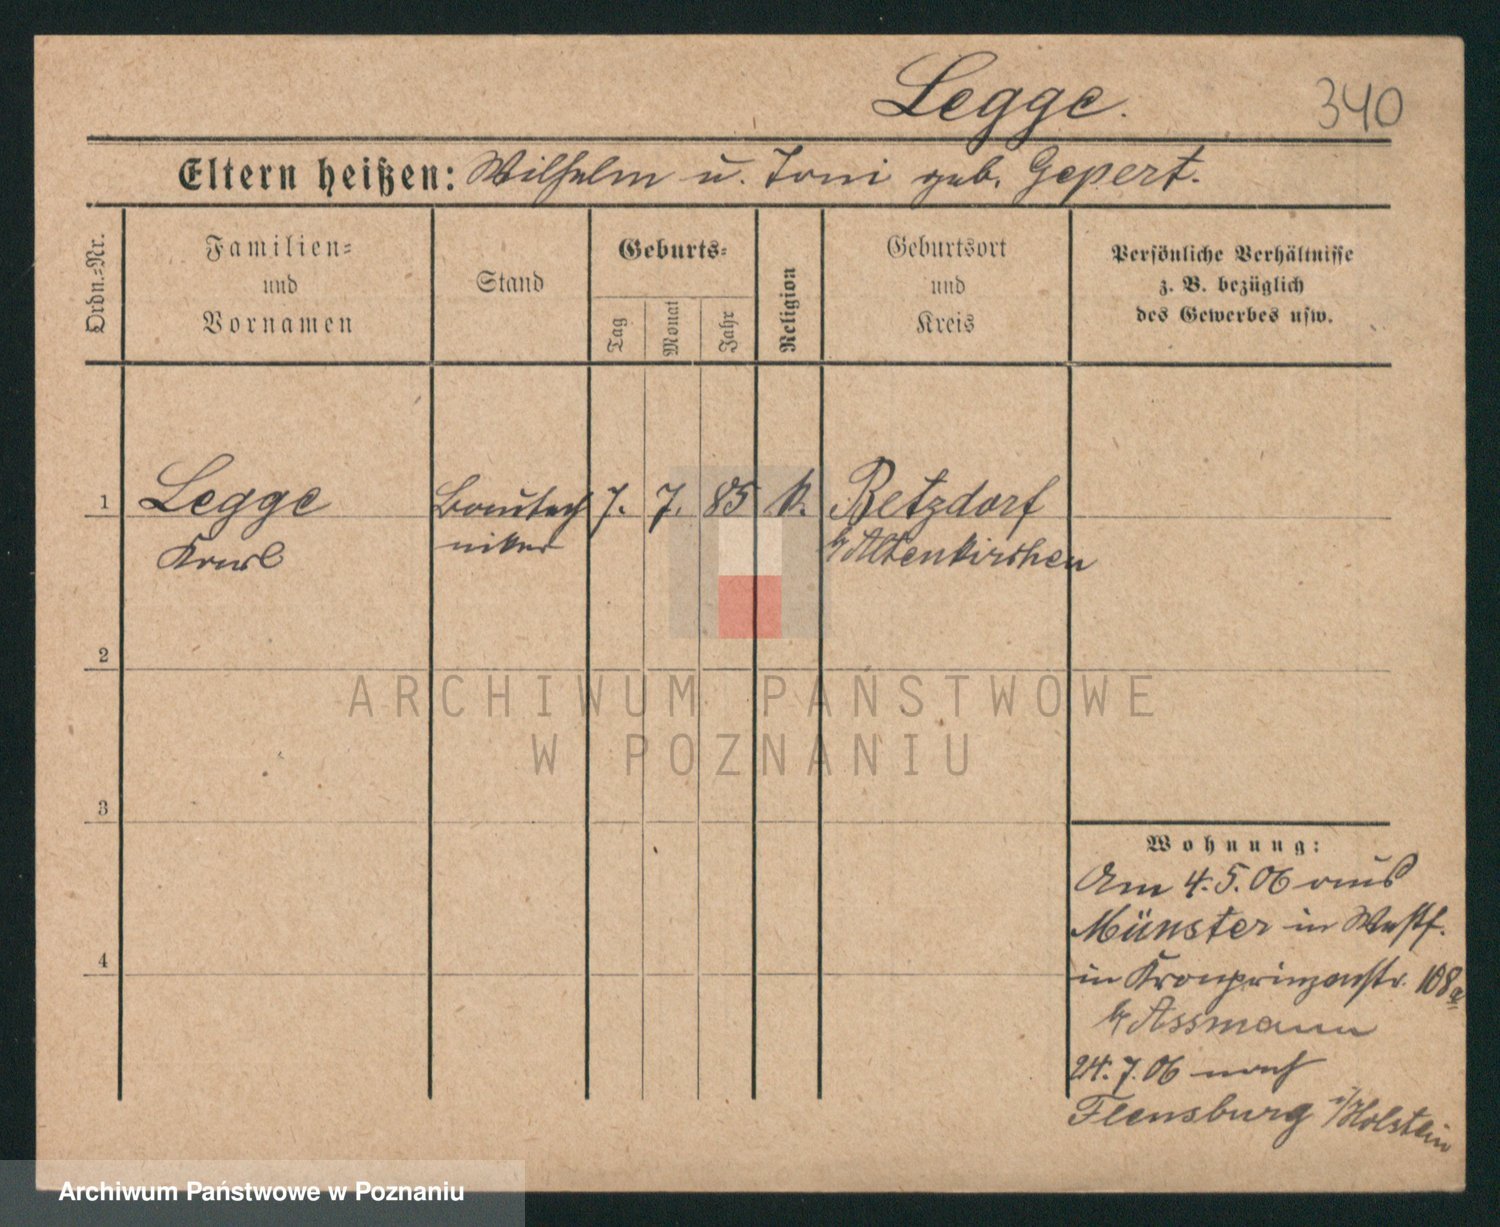 Legge.
340
Eltern heißen: Wilhelm u. Toni geb. Gepert.
Ordn.=Nr.
Familien=
und
Vornamen
Stand
Geburts=
Tag
Monat
Jahr
Religion
Geburtsort
und
Kreis
Persönliche Verhältnisse
z. B. bezüglich
des Gewerbes usw.
1 Legge Bautech 7. 7. 85 k. Betzdorf
Karl niker b/ Altenkirchen
2
ARCHIWUM PAŃSTWOWE
W POZNANIU
3
Wohnung:
Am 4.5.06 aus
Münster in Westf.
4
in Kronprinzenstr. 108a
b/ Assmann
24.7.06 nach
Flensburg i/Holstein
Archiwum Państwowe w Poznaniu